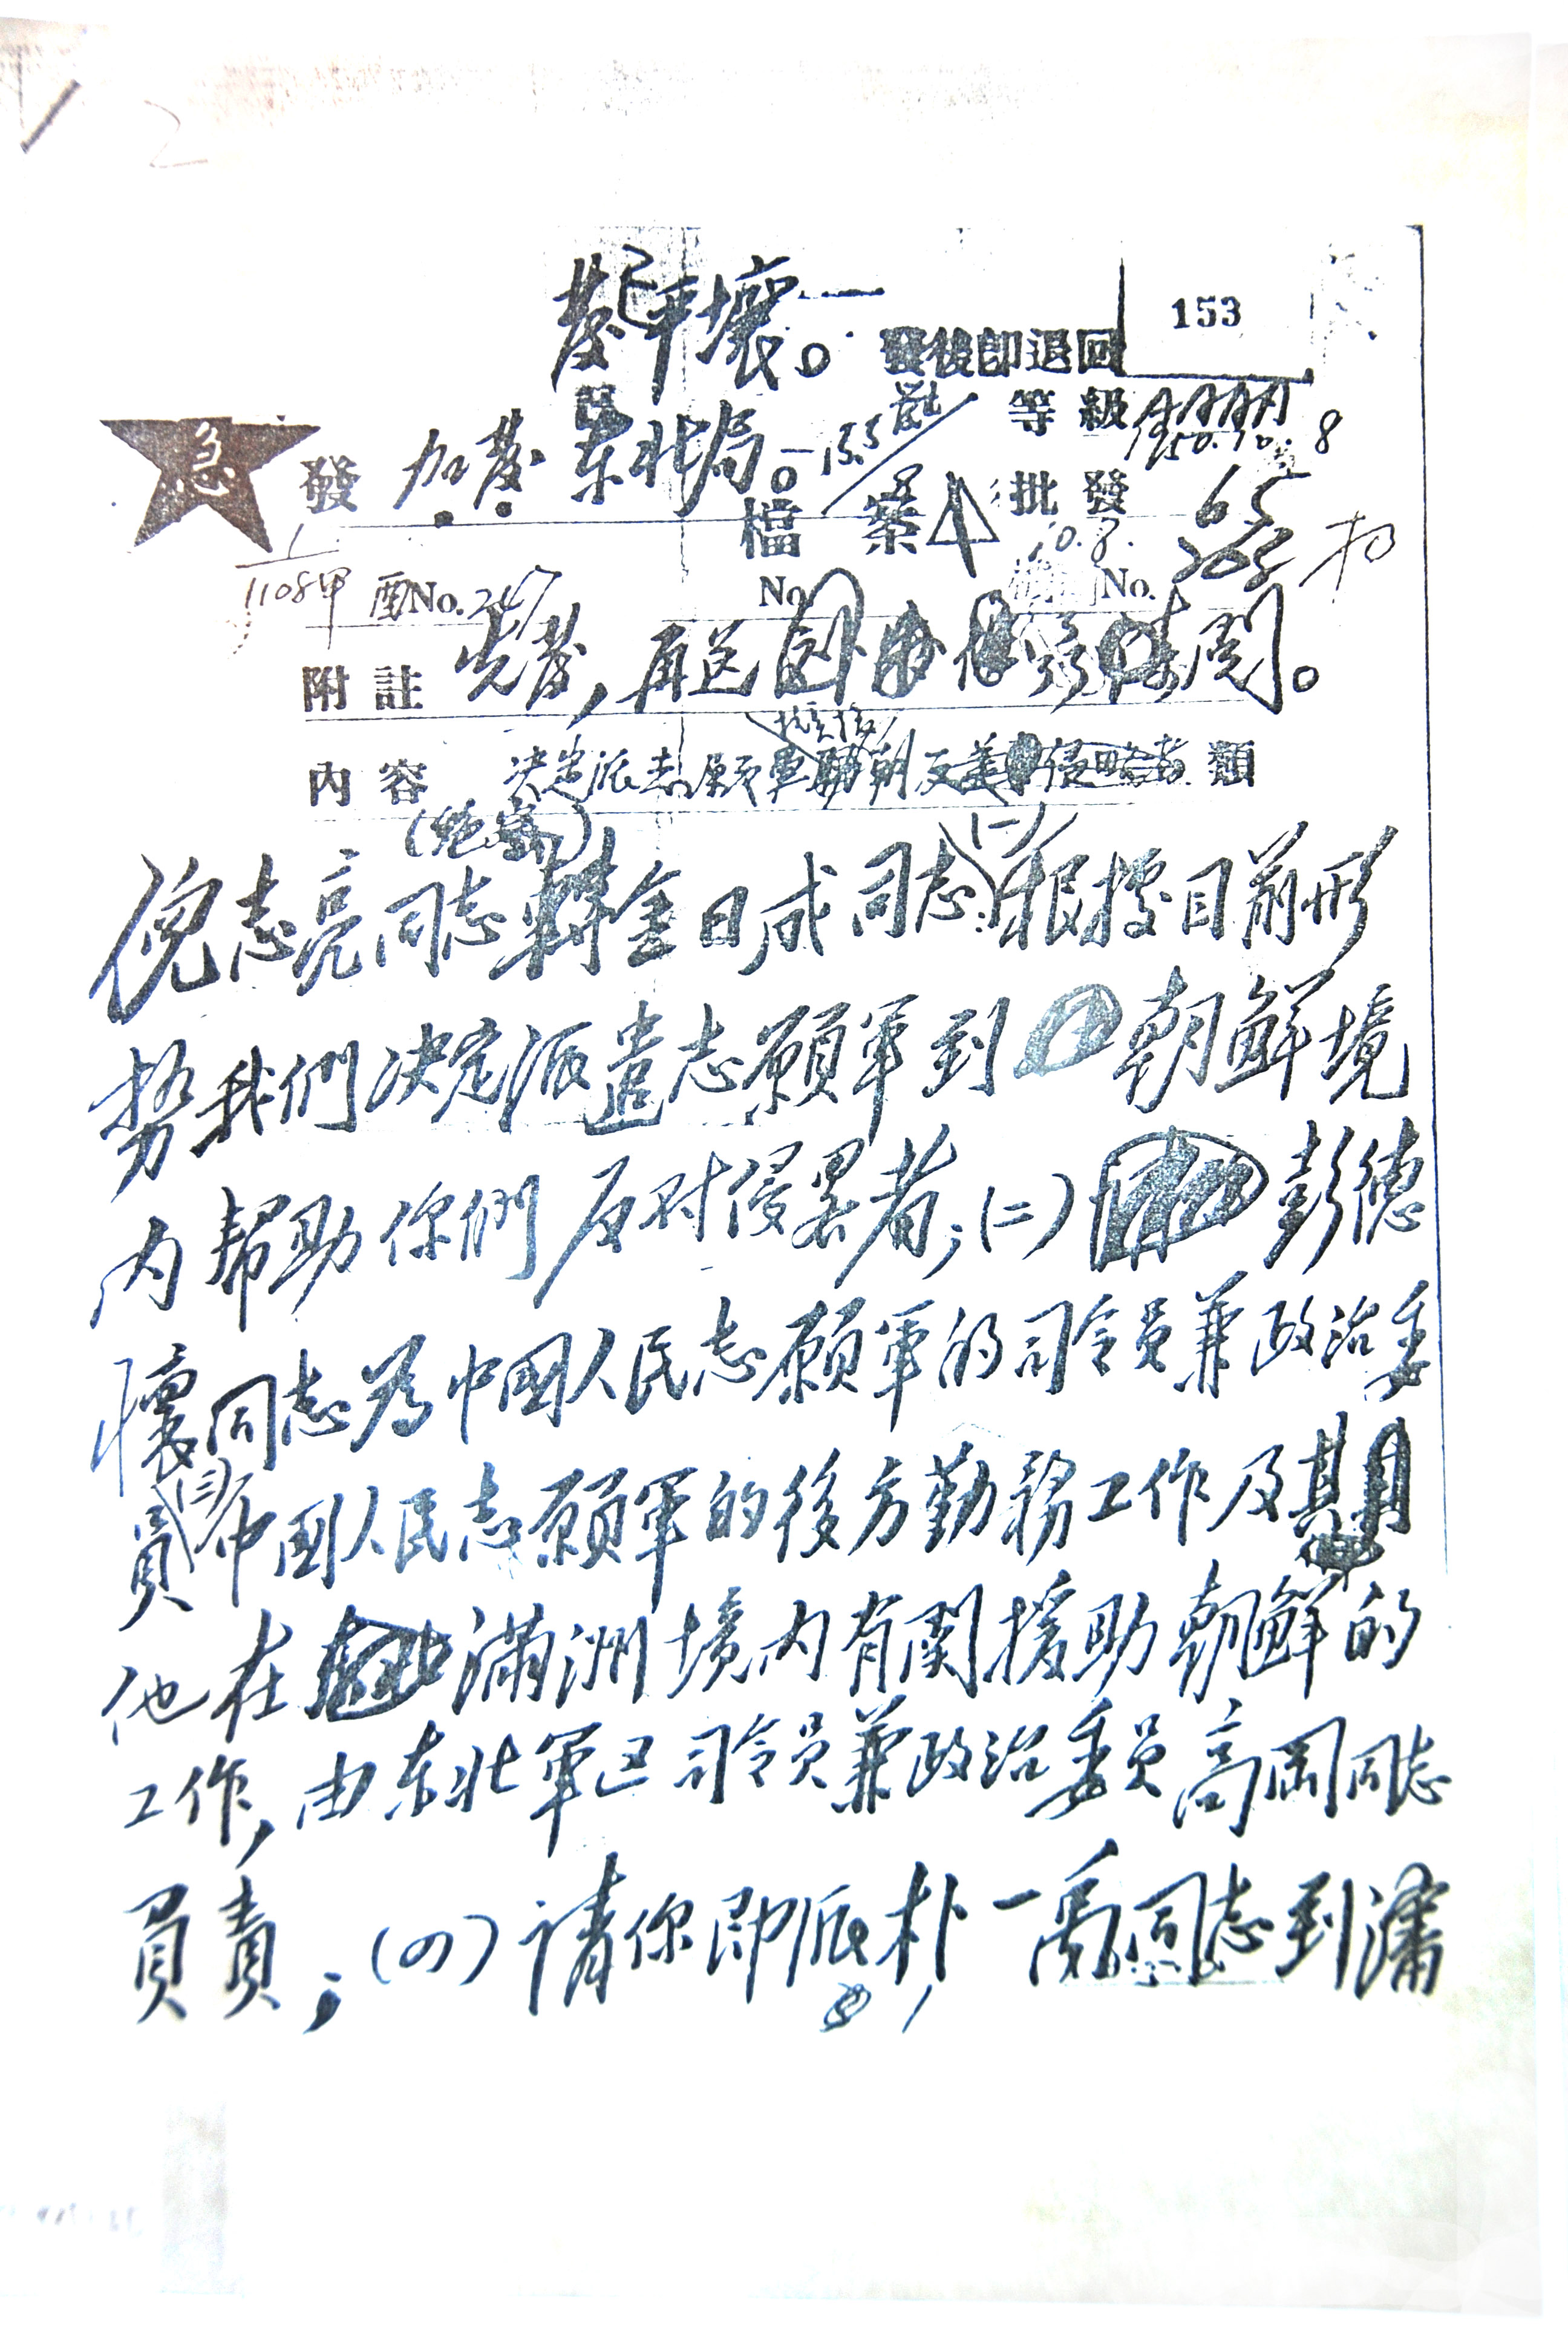 153
發平壤。
發後即退回
急
發 加發东北局。
等級 AAAA
1950.10.8
檔案
批發
10.8.
1108甲
No. 247
No.
No.
附註 先發,再送 閱。
內容 决定派志願軍 類
(絕密)
倪志亮同志轉金日成同志:(一)根據目前形
势我們决定派遣志願軍到朝鮮境
内幇助你們反对侵畧者;(二)彭德
懷同志為中國人民志願軍的司令員兼政治委
員(三)中國人民志願軍的後方勤務工作及其
他在滿洲境内有関援助朝鮮的
工作,由东北軍区司令員兼政治委員高岡同志
負責;(四)請你即派朴一禹同志到瀋